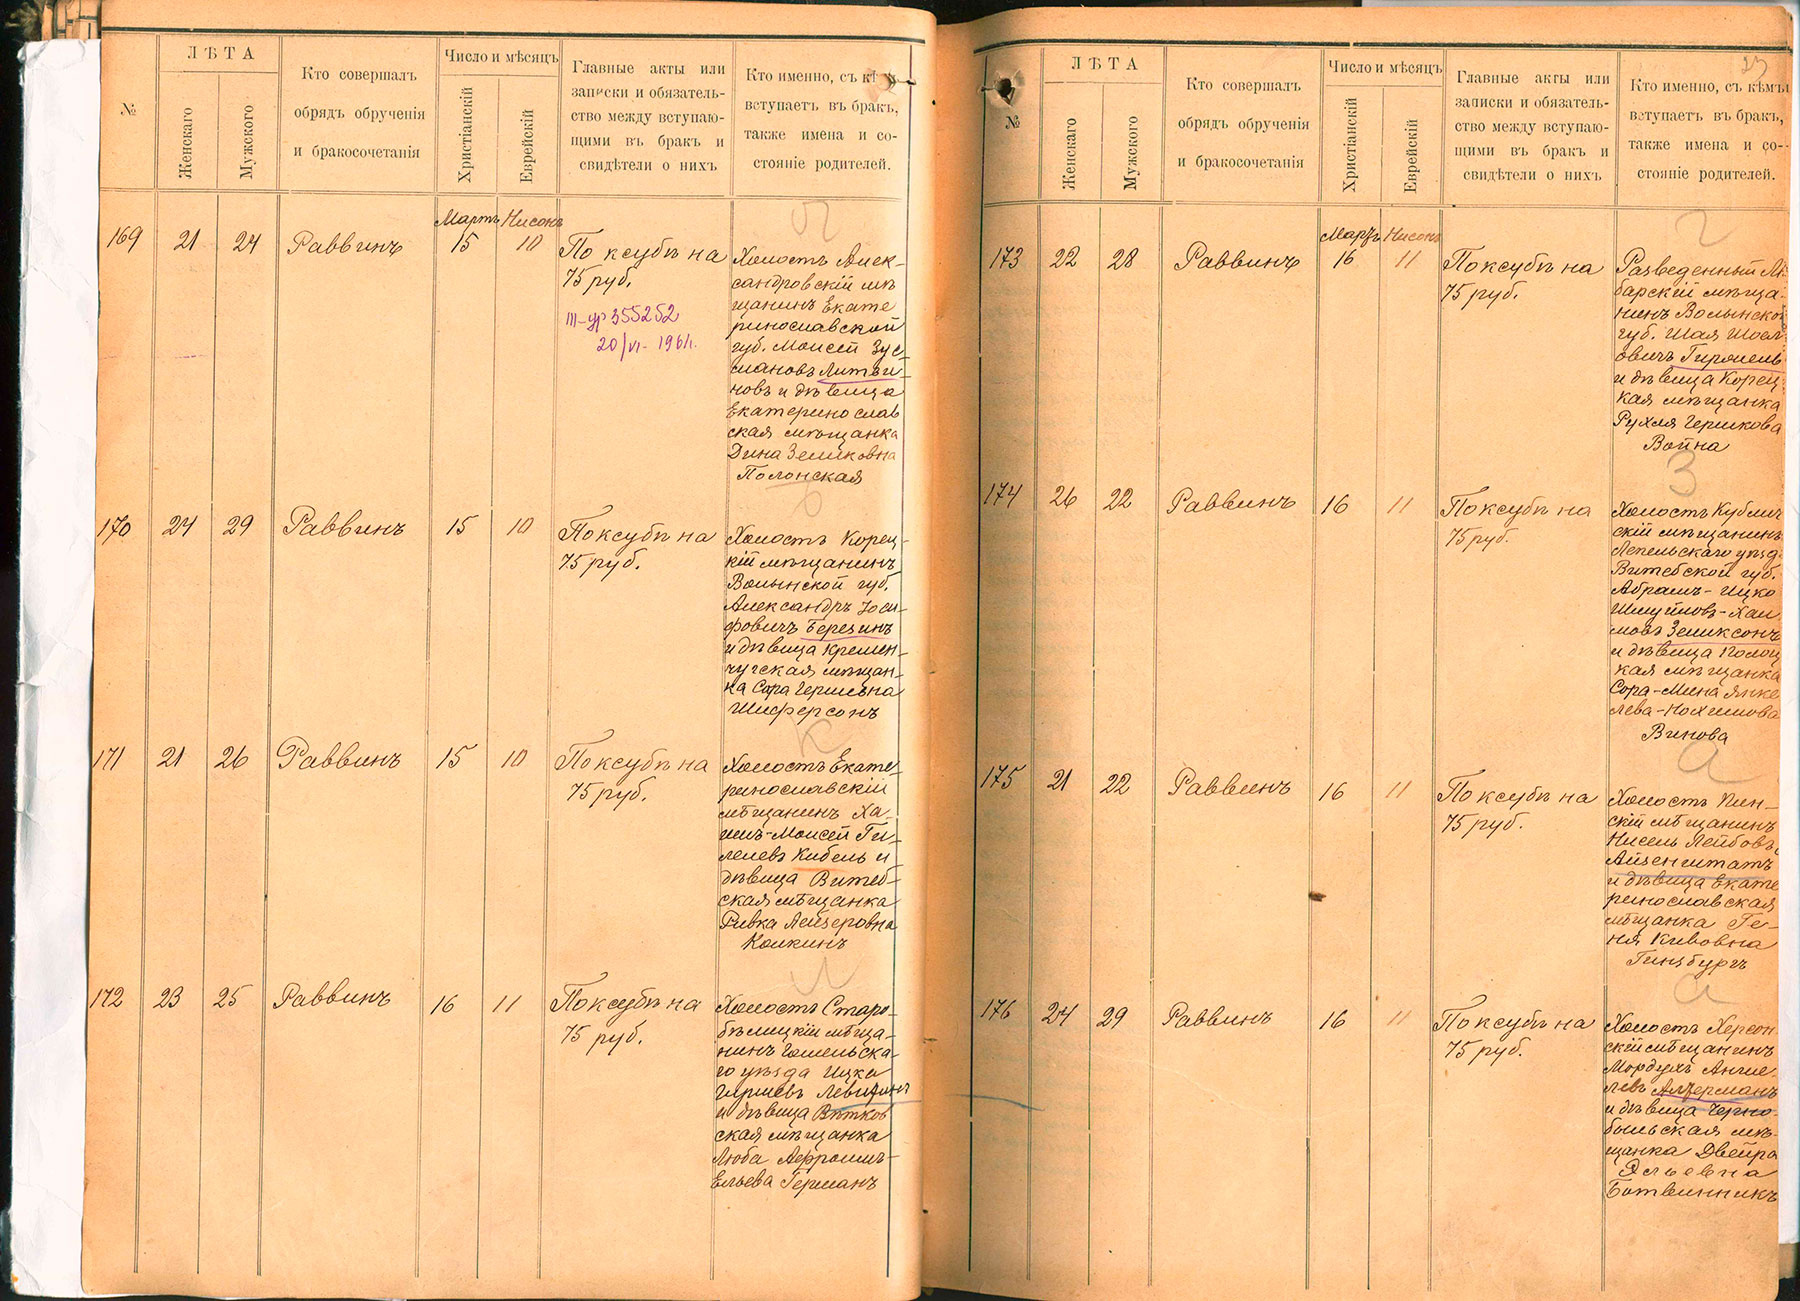 №
ЛѢТА
Женскаго
Мужского
Кто совершалъ
обрядъ обрученія
и бракосочетанія
Число и мѣсяцъ
Христіанскій
Еврейскій
Главные акты или
записки и обязатель-
ство между вступаю-
щими въ бракъ и
свидѣтели о нихъ
Кто именно, съ кѣмъ
вступаетъ въ бракъ,
также имена и со-
стояніе родителей.
Мартъ Нисонъ
169 21 24 Раввинъ 15 10 По ксубѣ на
75 руб.
III-ур 355252
20/VI- 1961.
Холостъ Алек-
сандровскій мѣ
щанинъ Екате
ринославской
губ. Моисей Зус-
мановъ Литви-
новъ и дѣвица
Екатеринослав
ская мѣщанка
Дина Зеликовна
Полонская
170 24 29 Раввинъ 15 10 По ксубѣ на
75 руб.
Холостъ Корец-
кій мѣщанинъ
Волынской губ.
Александръ Іоси-
фовичъ Березинъ
и дѣвица Кремен-
чугская мѣщан-
ка Сора Гершевна
Шиферсонъ
171 21 26 Раввинъ 15 10 По ксубѣ на
75 руб.
Холостъ Екате-
ринославскій
мѣщанинъ Ха-
имъ-Моисей Ги-
лелевъ Кибель и
дѣвица Витеб-
ская мѣщанка
Ривка Лейзеровна
Колкинъ
172 23 25 Раввинъ 16 11 По ксубѣ на
75 руб.
Холостъ Старо-
бѣлицкій мѣща-
нинъ Гомельска-
го уѣзда Ицка
Гиршевъ Левитинъ
и дѣвица Вѣтков
ская мѣщанка
Люба Афроимъ-
Ельева Германъ
23
№
ЛѢТА
Женскаго
Мужского
Кто совершалъ
обрядъ обрученія
и бракосочетанія
Число и мѣсяцъ
Христіанскій
Еврейскій
Главные акты или
записки и обязатель-
ство между вступаю-
щими въ бракъ и
свидѣтели о нихъ
Кто именно, съ кѣмъ
вступаетъ въ бракъ,
также имена и со-
стояніе родителей.
Мартъ Нисонъ
173 22 28 Раввинъ 16 11 По ксубѣ на
75 руб.
г
Разведенный Лю
барскій мѣща-
нинъ Волынской
губ. Шая Шоел-
овичъ
и дѣвица Корец-
кая мѣщанка
Рухля Гершкова
Война
174 26 22 Раввинъ 16 11 По ксубѣ на
75 руб.
З
Холостъ Кублич
скій мѣщанинъ
Лепельскаго уѣзд.
Витебской губ.
Абрамъ-Ицко
Шмуйловъ-Хаи-
мовъ Зеликсонъ
и дѣвица Полоц
кая мѣщанка
Сора-Мина Янке
лева-Нохимова
Винова
175 21 22 Раввинъ 16 11 По ксубѣ на
75 руб.
а
Холостъ Пин-
скій мѣщанинъ
Нисель Лейбовъ
Айзенштатъ
и дѣвица Екате
ринославская
мѣщанка Ге-
ня Кивовна
Гинзбургъ
176 24 29 Раввинъ 16 11 По ксубѣ на
75 руб.
а
Холостъ Херсон
скій мѣщанинъ
Мордухъ Анше-
левъ Алтерманъ
и дѣвица Черно-
быльская мѣ-
щанка Двейра
Эльевна
Ботвинникъ